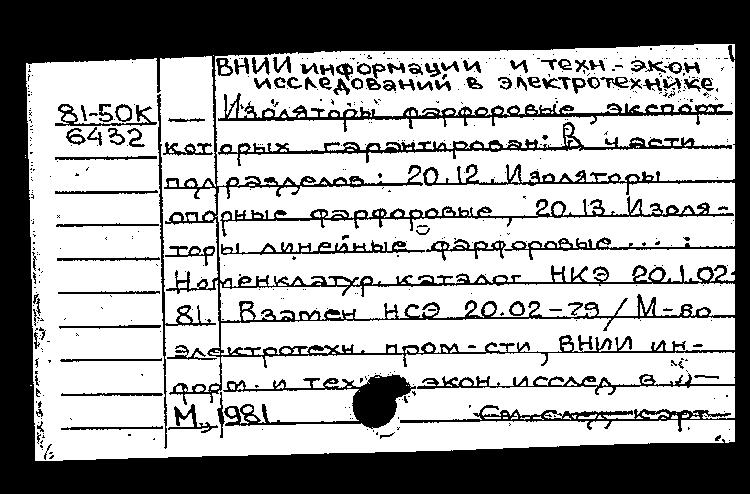 ВНИИ информации и техн.-экон
исследований в электротехнике.
81-50К
6432
— Изоляторы фарфоровые, экспорт
которых гарантирован: В части
подразделов: 20.12. Изоляторы
опорные фарфоровые, 20.13. Изоля-
торы линейные фарфоровые... :
Номенклатур. каталог НКЭ 20.1.02-
81. Взамен НСЭ 20.02-79 / М-во
электротехн. пром-сти, ВНИИ ин-
форм. и тех экон. исслед. в
М., 1981.
См. след. карт